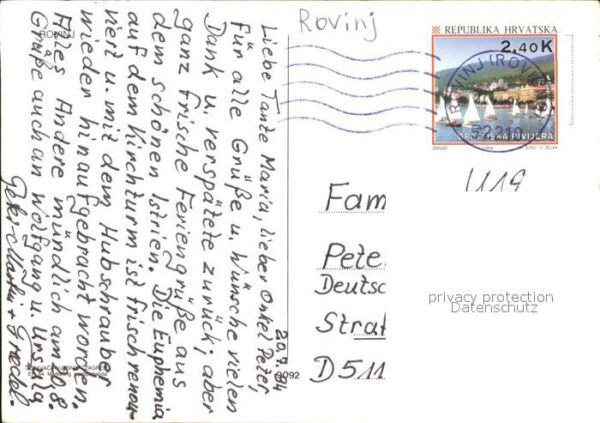 Rovinj
ROVINJ
20.7.94
Liebe Tante Maria, lieber Onkel Peter,
für alle Grüße u. Wünsche vielen
Dank u. verspätete zurück; aber
ganz frische Feriengrüße aus
dem schönen Istrien. Die Euphemia
auf dem Kirchturm ist frisch renou-
viert u. mit dem Hubschrauber
wieder hinaufgebracht worden.
Alles Andere mündlich am 20.8.
Grüße auch an Wolfgang u. Ursula
Peter Martin + Friedel.
9092
REPUBLIKA HRVATSKA
2,40K
ROVINJ (ROVIN
HRVATSKA RIVIJERA
1994
1119
Fam
Pete
Deutsc
Straf
D 511
privacy protection
Datenschutz